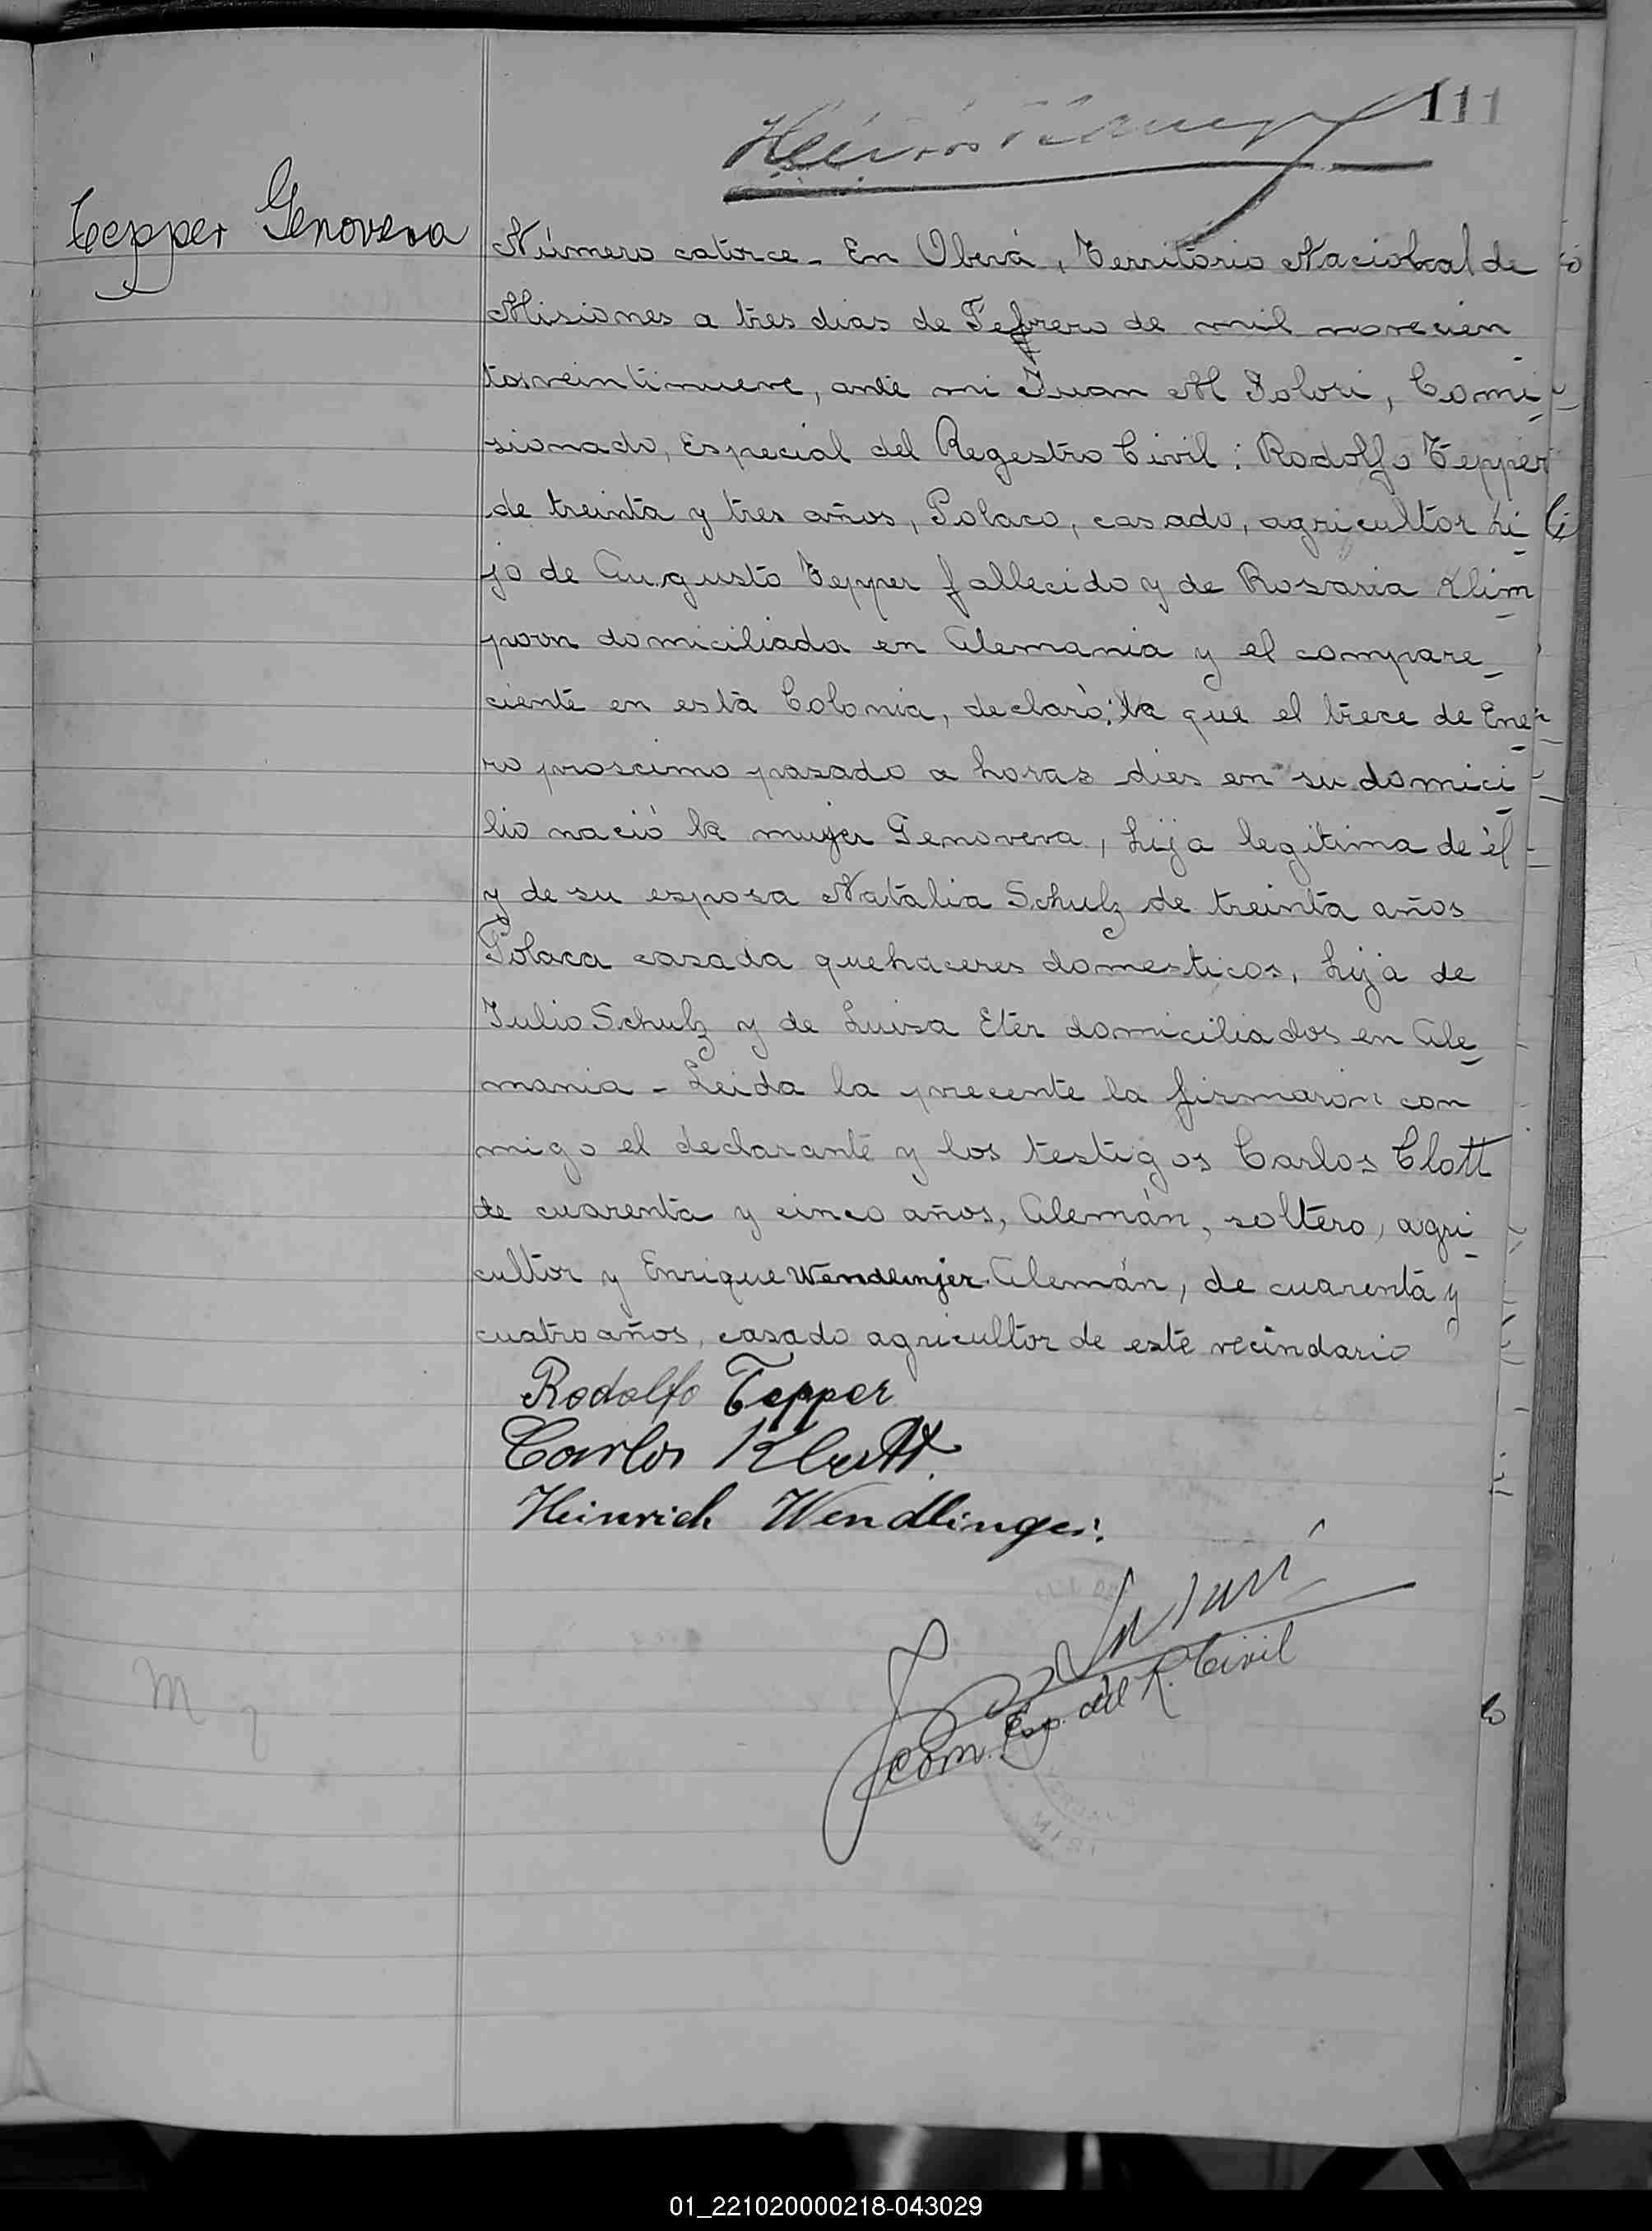 111
Tepper Genoveva
Número catorce - En Oberá, Territorio Nacional de
Misiones a tres dias de Febrero de mil novecien
tos veintinueve, ante mi Juan M Solari, Comi-
sionado, Especial del Regestro Civil: Rodolfo Tepper
de treinta y tres años, Polaco, casado, agricultor hi-
jo de Augusto Tepper fallecido y de Rosaria Klim
poon domiciliada en Alemania y el compare-
ciente en esta Colonia, declaró: que el trece de Ene-
ro proscimo pasado a horas dies en su domici-
lio nació la mujer Genoveva, hija legitima de èl
y de su esposa Natalia Schulz de treinta años
Polaca casada quehaceres domesticos, hija de
Julio Schulz y de Luisa Eter domiciliados en Ale-
mania - Leida la precente la firmaron con
migo el declarante y los testigos Carlos Clott
de cuarenta y cinco años, Alemán, soltero, agri-
cultor y Enrique Wendlinjer Alemán, de cuarenta y
cuatro años, casado agricultor de este vecindario
Rodolfo Tepper
Carlos Klott.
Heinrich Wendlinger.
Com. Esp. del R. Civil
01_221020000218-043029